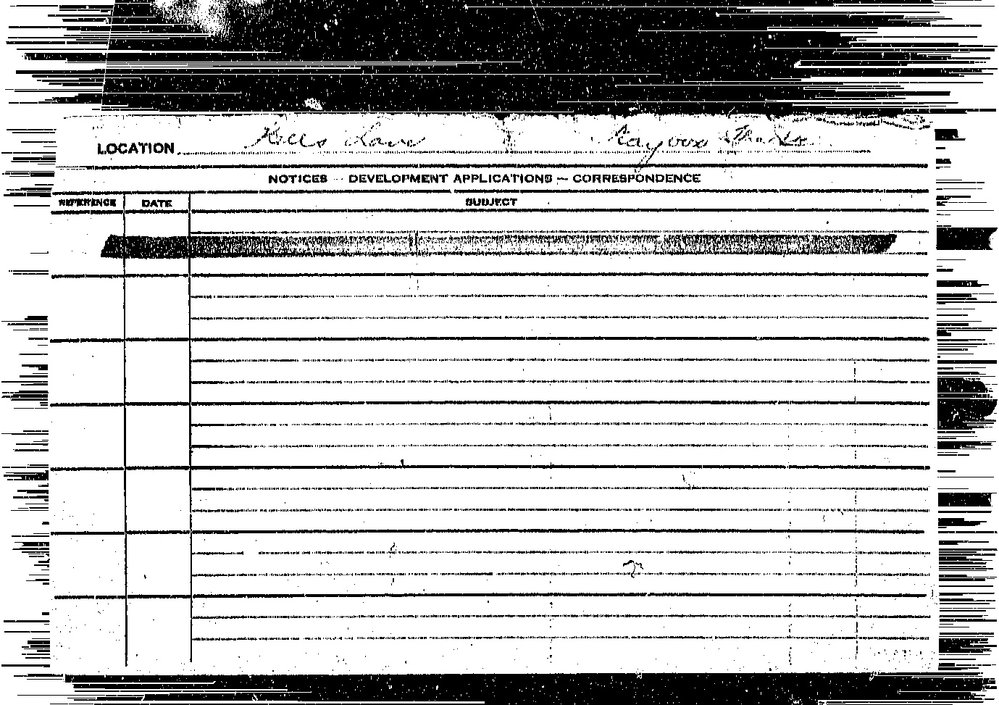 LOCATION Kells Lane
NOTICES — DEVELOPMENT APPLICATIONS — CORRESPONDENCE
REFERENCE DATE SUBJECT